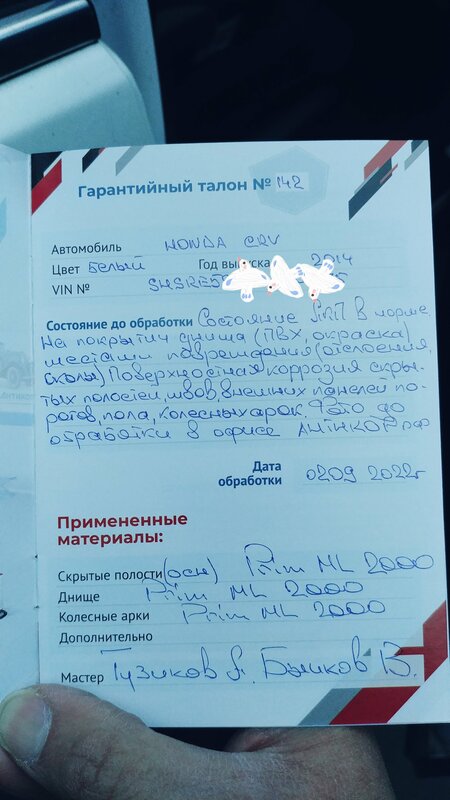 Гарантийный талон № 142
Автомобиль HONDA CRV
Цвет Белый Год выпуска 2014
VIN № SHSRE5
Состояние до обработки Состояние ЛКП в норме,
На покрытии днища (ПВХ, окраска)
местами повреждения (отслоения,
сколы) Поверхностная коррозия скры-
тых полостей, швов, внешних панелей по-
рогов, пола, колесных арок. Фото до
обработки в офисе АНТИКОР
Дата
обработки 02.09 2022г
Примененные
материалы:
Скрытые полости (осн) Prim ML 2000
Днище Prim ML 2000
Колесные арки Prim ML 2000
Дополнительно
Мастер Тузиков А. Быиков В.